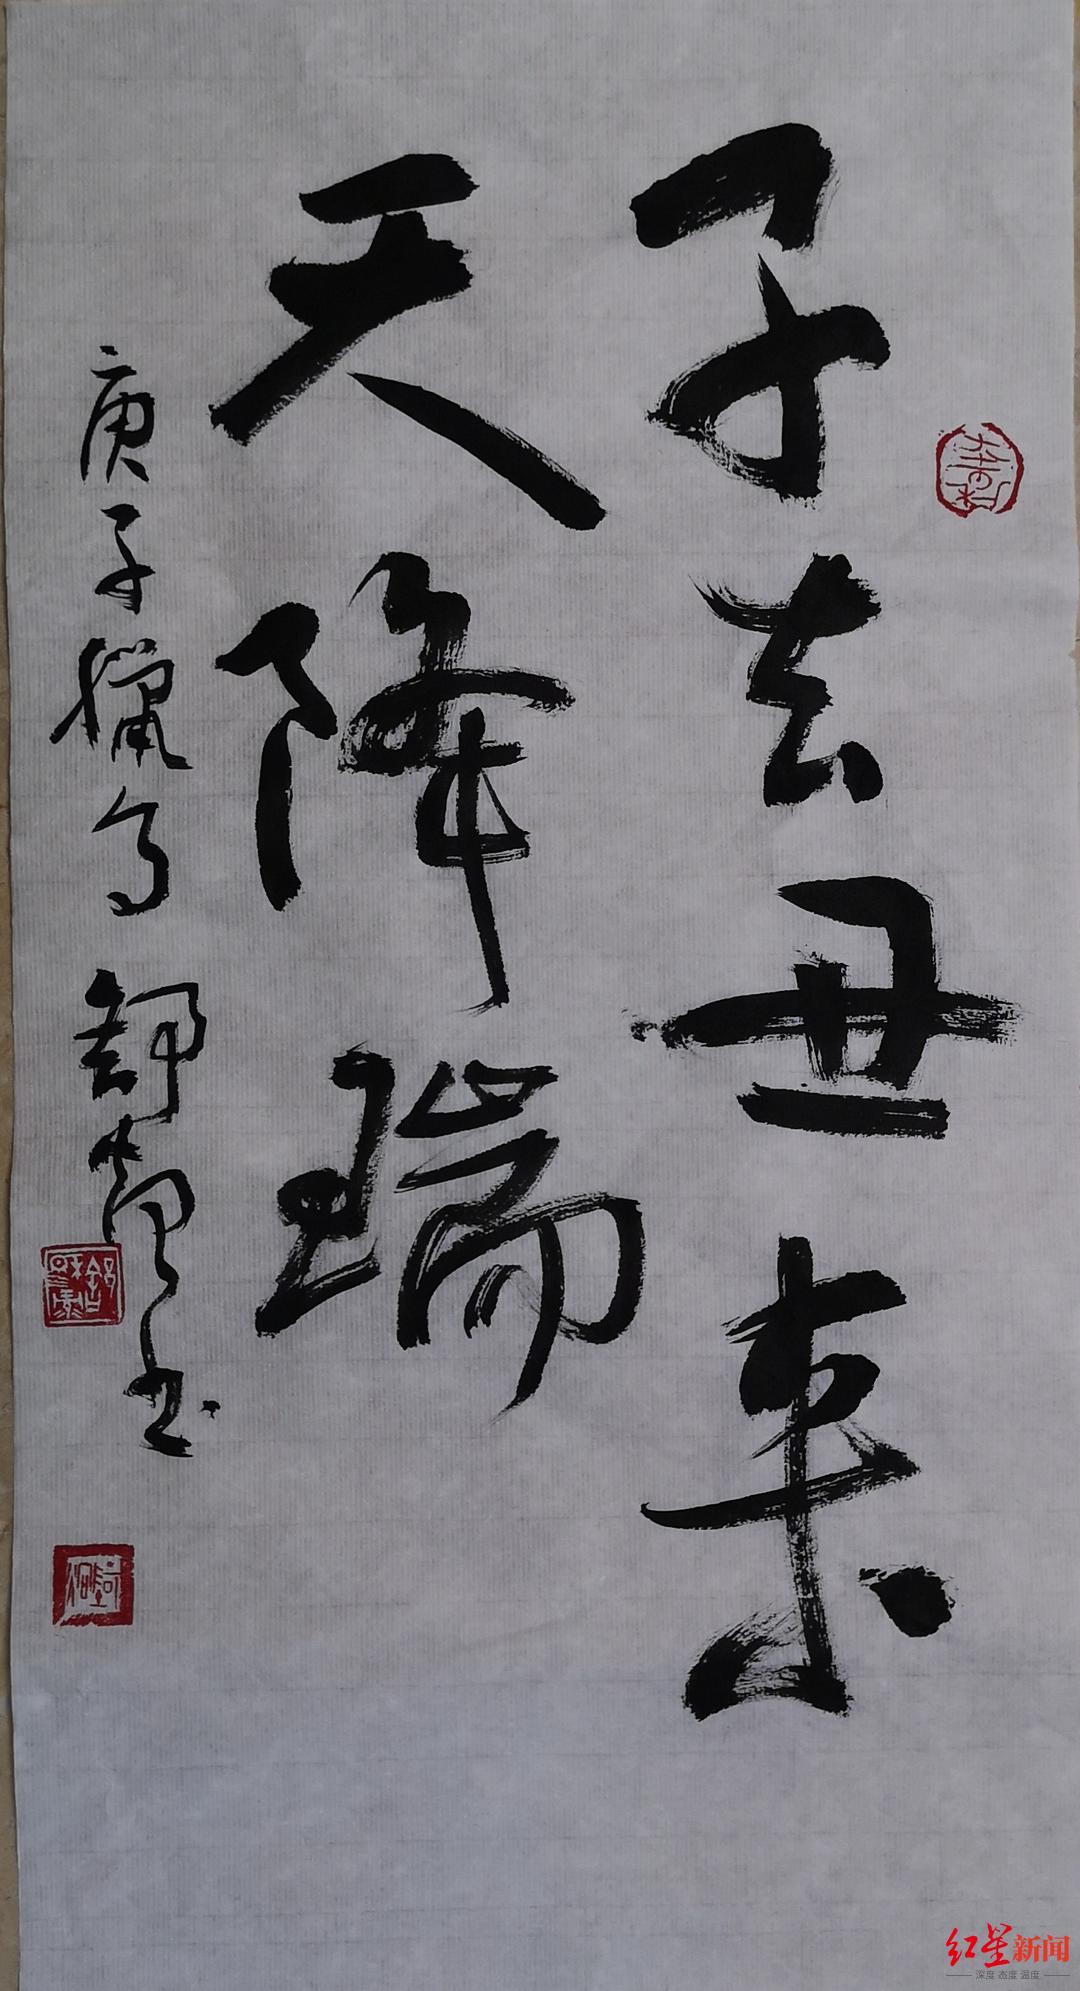 子去丑来
天降瑞
庚子腊月 舒 书
红星新闻
深度 态度 温度